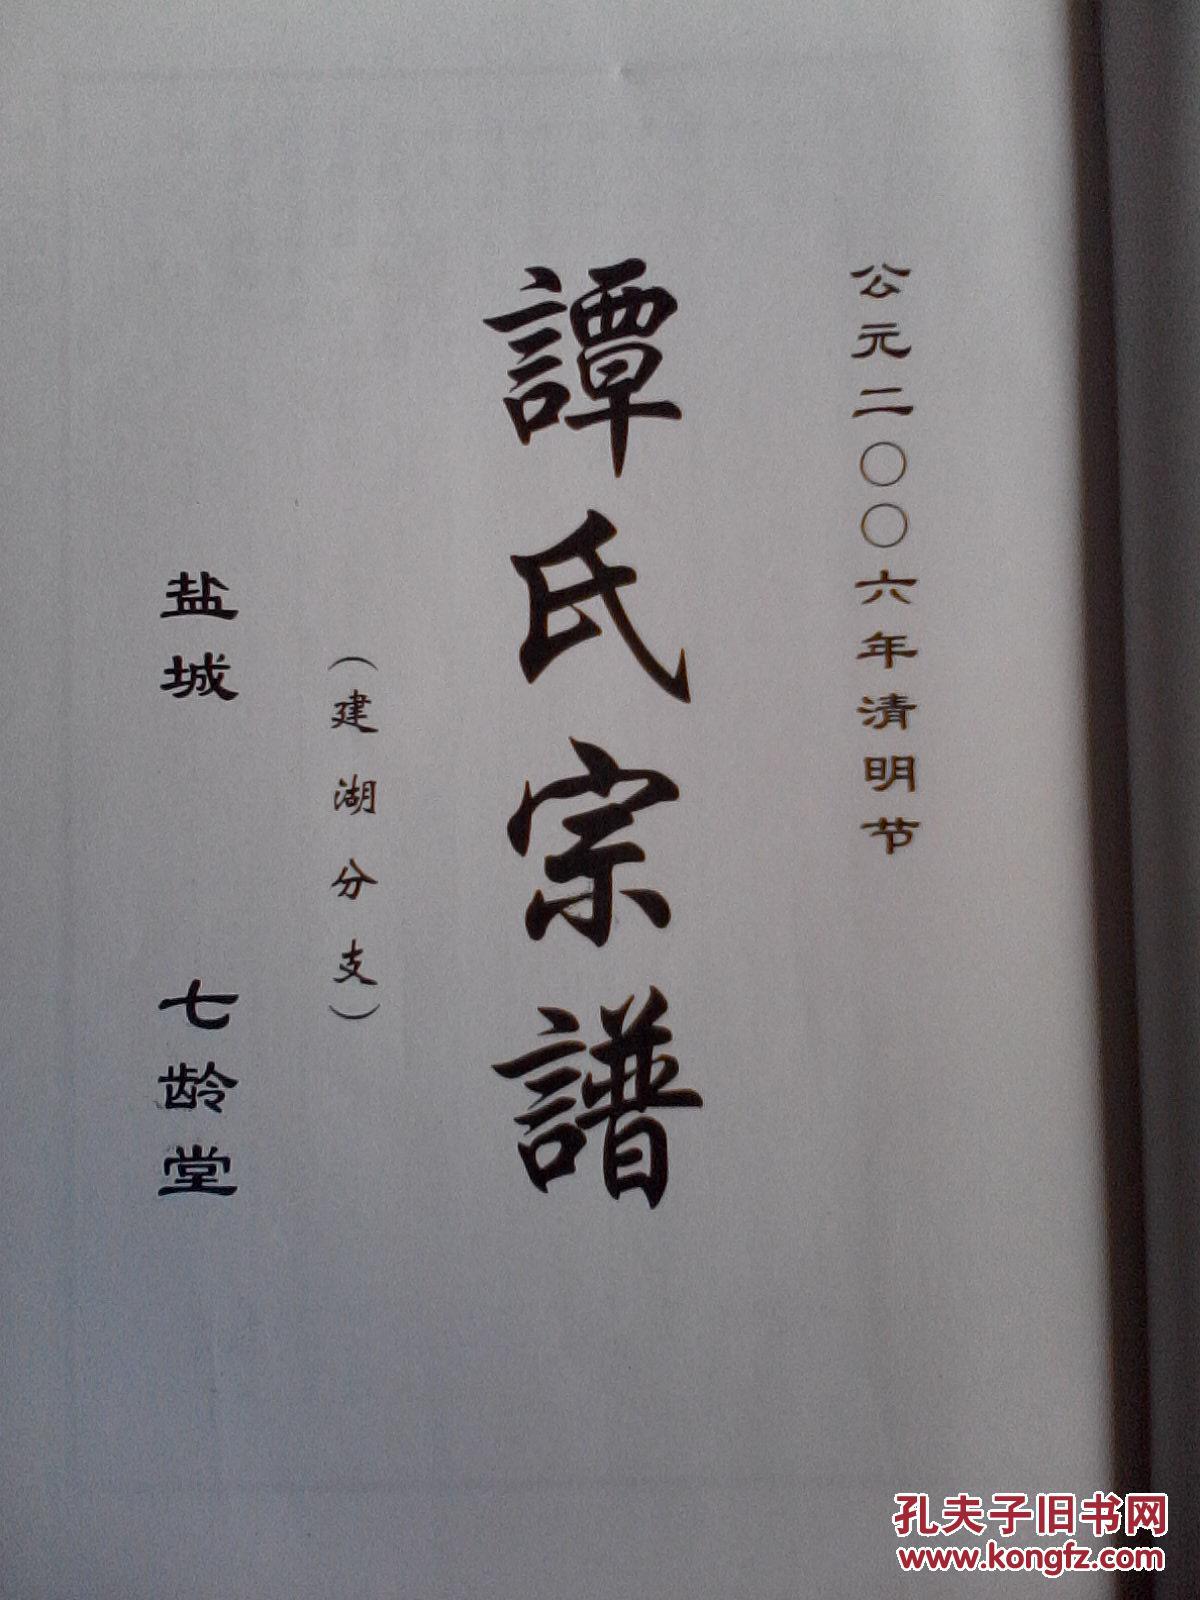 公元二〇〇六年清明节
譚氏宗譜
（建湖分支）
盐城 七龄堂
孔夫子旧书网
www.kongfz.com